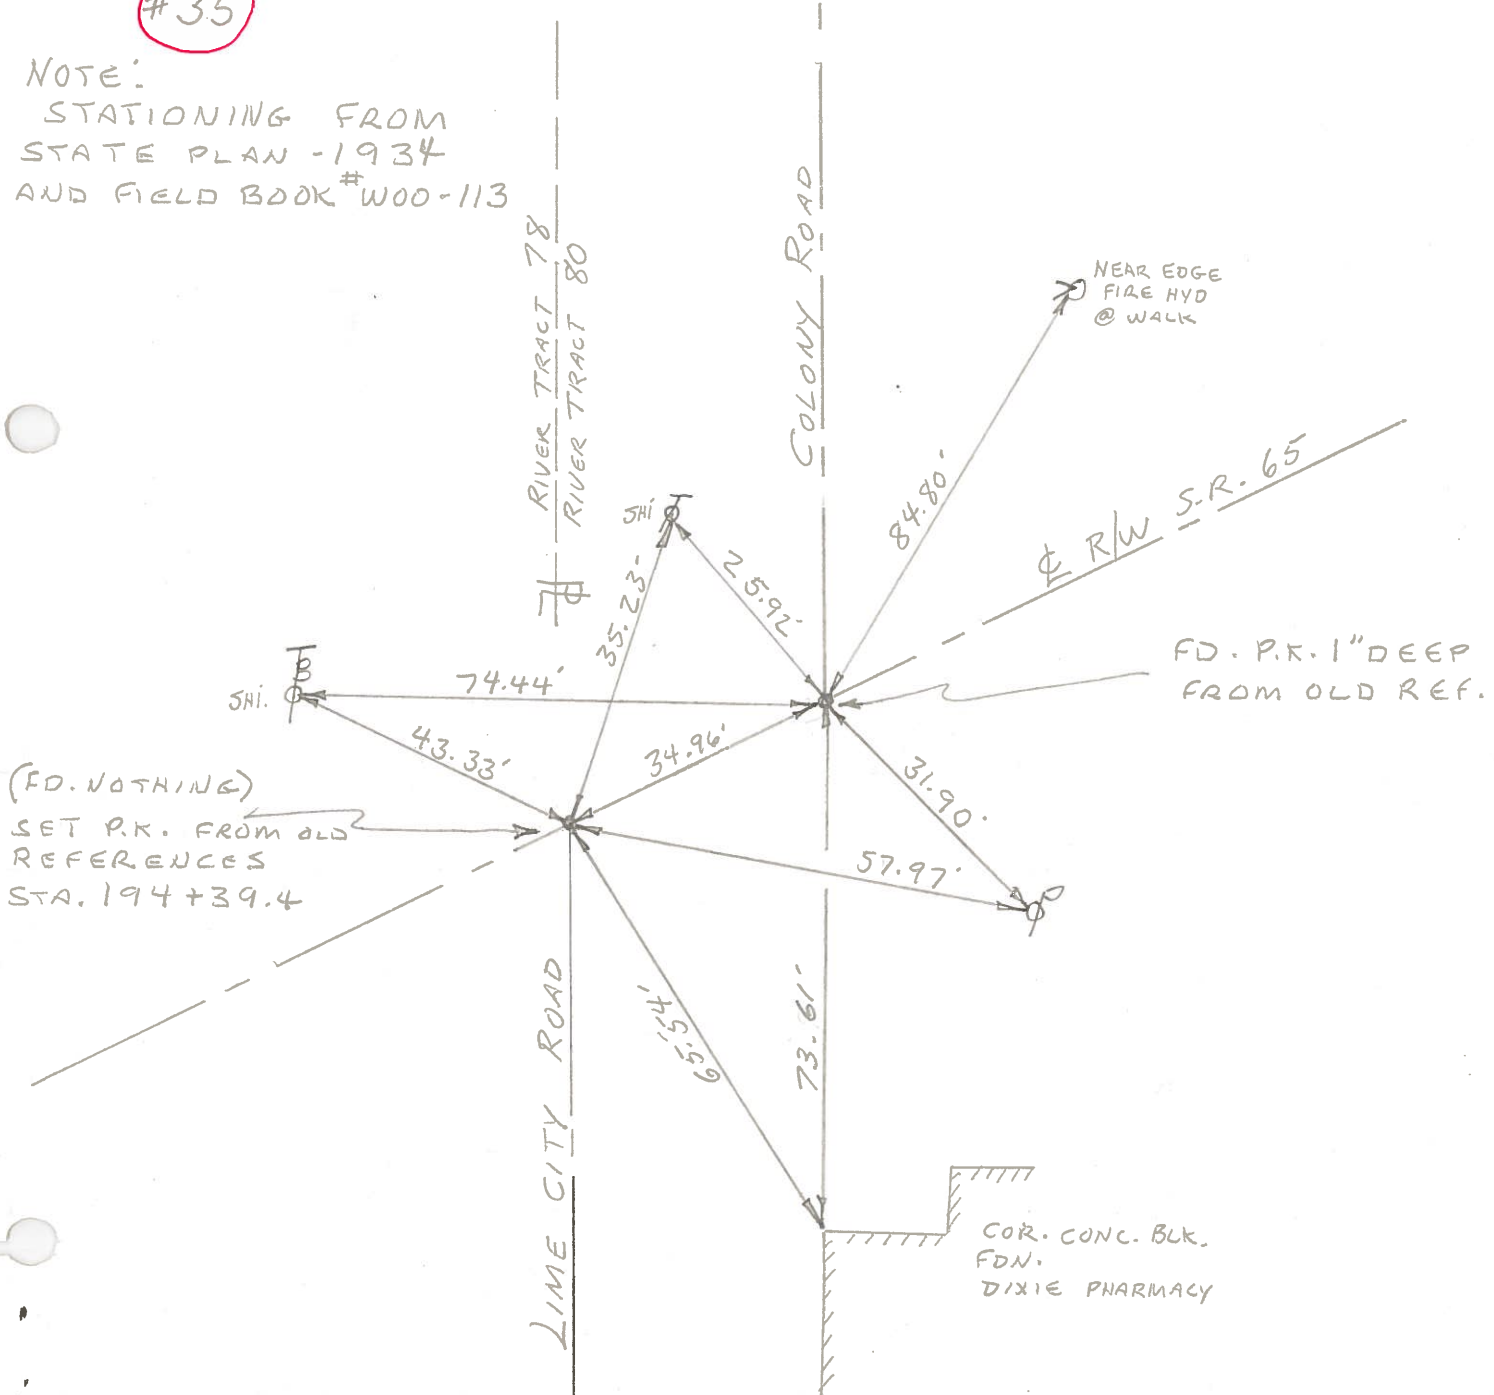 #35
NOTE:
STATIONING FROM
STATE PLAN - 1934
AND FIELD BOOK #WOO-113
RIVER TRACT 78
RIVER TRACT 80
COLONY ROAD
NEAR EDGE
FIRE HYD
@ WALK
84.80'
℄ R/W S.R. 65
SHI
35.23'
25.92'
FD. P.K. 1" DEEP
FROM OLD REF.
SHI.
74.44'
43.33'
34.96'
31.90'
(FD. NOTHING)
SET P.K. FROM OLD
REFERENCES
STA. 194+39.4
57.97'
65.54'
73.61'
LIME CITY ROAD
COR. CONC. BLK.
FDN.
DIXIE PHARMACY